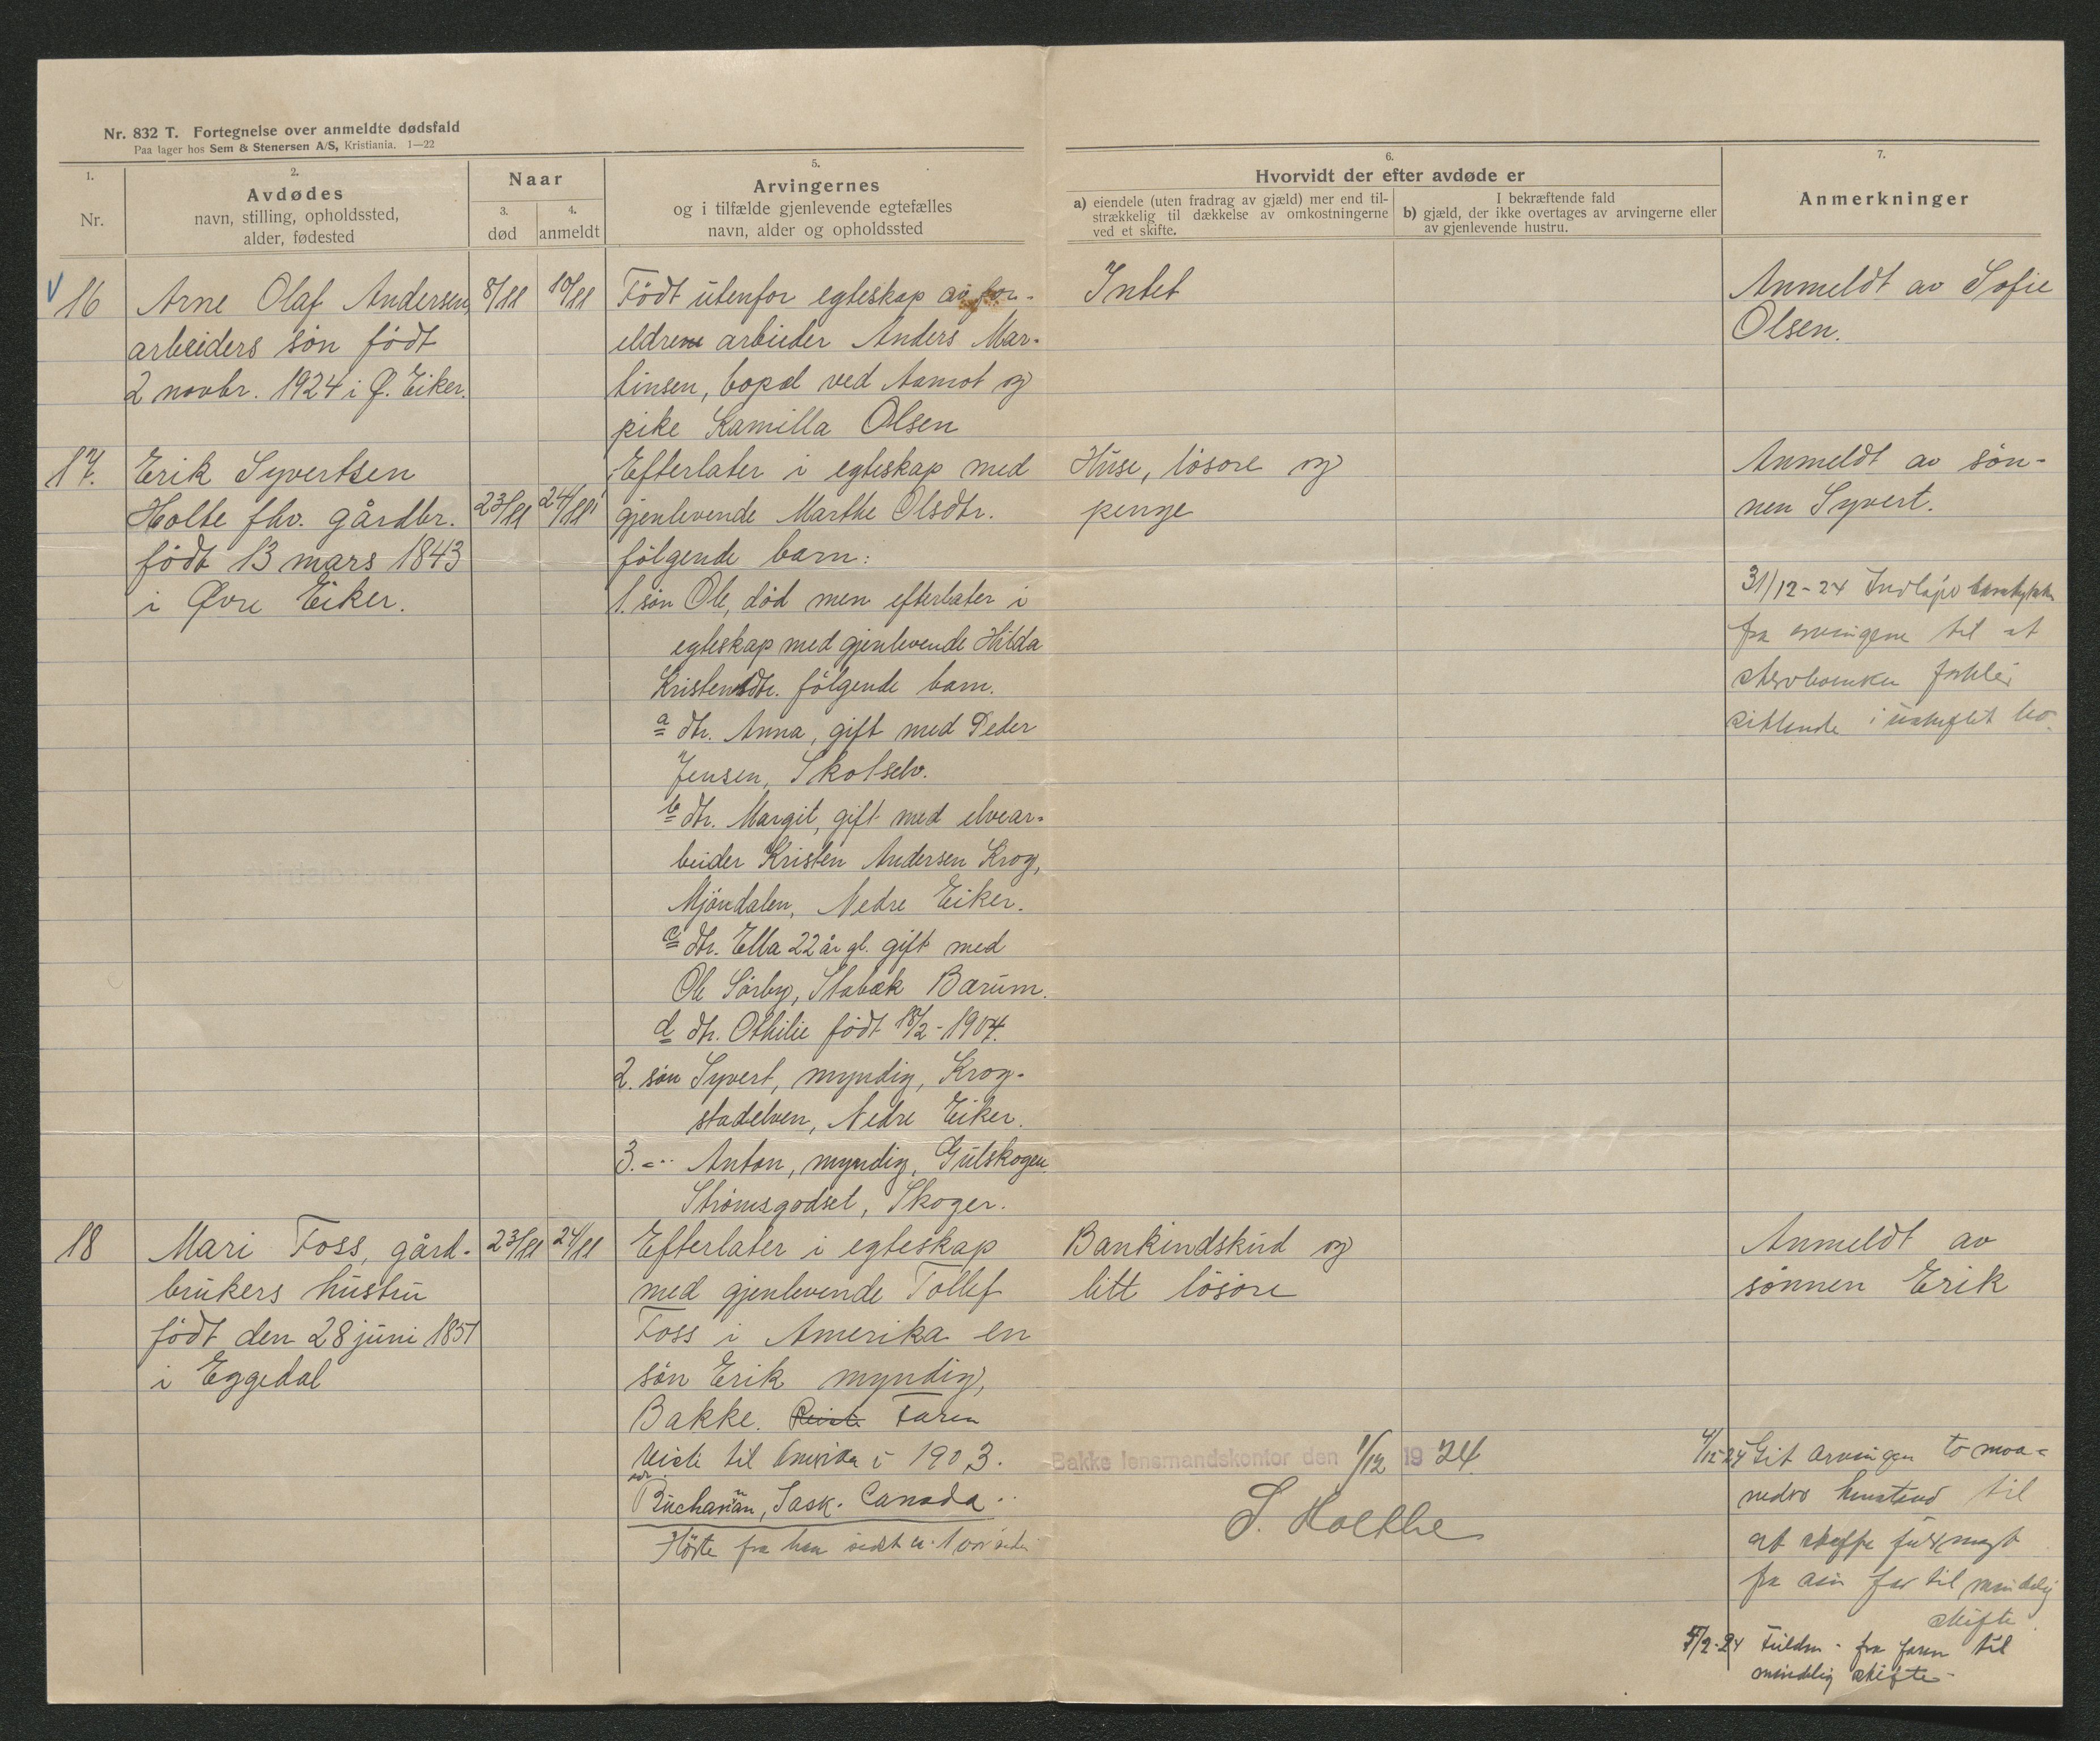 Nr. 832 T. Fortegnelse over anmeldte dødsfald
Paa lager hos Sem & Stenersen A/S, Kristiania. 1—22
1.
Nr.
2.
Avdødes
navn, stilling, opholdssted,
alder, fødested
Naar
3.
død
4.
anmeldt
5.
Arvingernes
og i tilfælde gjenlevende egtefælles
navn, alder og opholdssted
6.
Hvorvidt der efter avdøde er
a) eiendele (uten fradrag av gjæld) mer end til-
strækkelig til dækkelse av omkostningerne
ved et skifte.
I bekræftende fald
b) gjæld, der ikke overtages av arvingerne eller
av gjenlevende hustru.
7.
Anmerkninger
16
Arne Olaf Andersen,
arbeiders søn født
2 novbr. 1924 i Ø. Eiker.
8/11
10/11
Født utenfor egteskap av for-
eldrene arbeider Anders Mar-
tinsen, bopæl ved Aamot og
pike Kamilla Olsen
Intet
Anmeldt av Sofie
Olsen.
17.
Erik Syvertsen
Holte fhv. gårdbr.
født 13 mars 1843
i Øvre Eiker.
23/11
24/11
Efterlater i egteskap med
gjenlevende Marthe Olsdtr.
følgende barn:
1. søn Ole, død men efterlater i
egteskap med gjenlevende Hilda
Kristensdtr. følgende barn.
a dtr. Anna, gift med Peder
Jensen, Skotselv.
b dtr. Margit, gift med elvear-
beider Kristen Andersen Krog,
Mjøndalen, Nedre Eiker.
c dtr. Ella 22 år gl. gift med
Ole Sørby, Stabæk Bærum.
d dtr. Othilie født 18/2-1904.
2. søn Syvert, myndig, Krog-
stadelven, Nedre Eiker.
3. -"- Anton, myndig, Gulskogen
Strømsgodset, Skoger.
Huse, løsøre og
penge
Anmeldt av søn-
nen Syvert.
31/12-24
fra arvingene til at
sittende i uskiftet bo.
18
Mari Foss, gård-
brukers hustru
født den 28 juni 1851
i Eggedal
23/11
24/11
Efterlater i egteskap
med gjenlevende Tollef
Foss i Amerika en
søn Erik myndig,
Bakke. Reiste Faren
reiste til Amerika i 1903.
adr.
Buchanan, Sask. Canada.
Hørte fra han sidst
Bankindskud og
litt løsøre
Anmeldt av
sønnen Erik
Bakke lensmandskontor den 1/12 1924
S.Holthe
4/12-24 Git arvingen to maa-
neders henstand til
at skaffe fuldmagt
fra sin far til mindelig
skifte.
Fuldm. fra faren til
mindelig skifte-